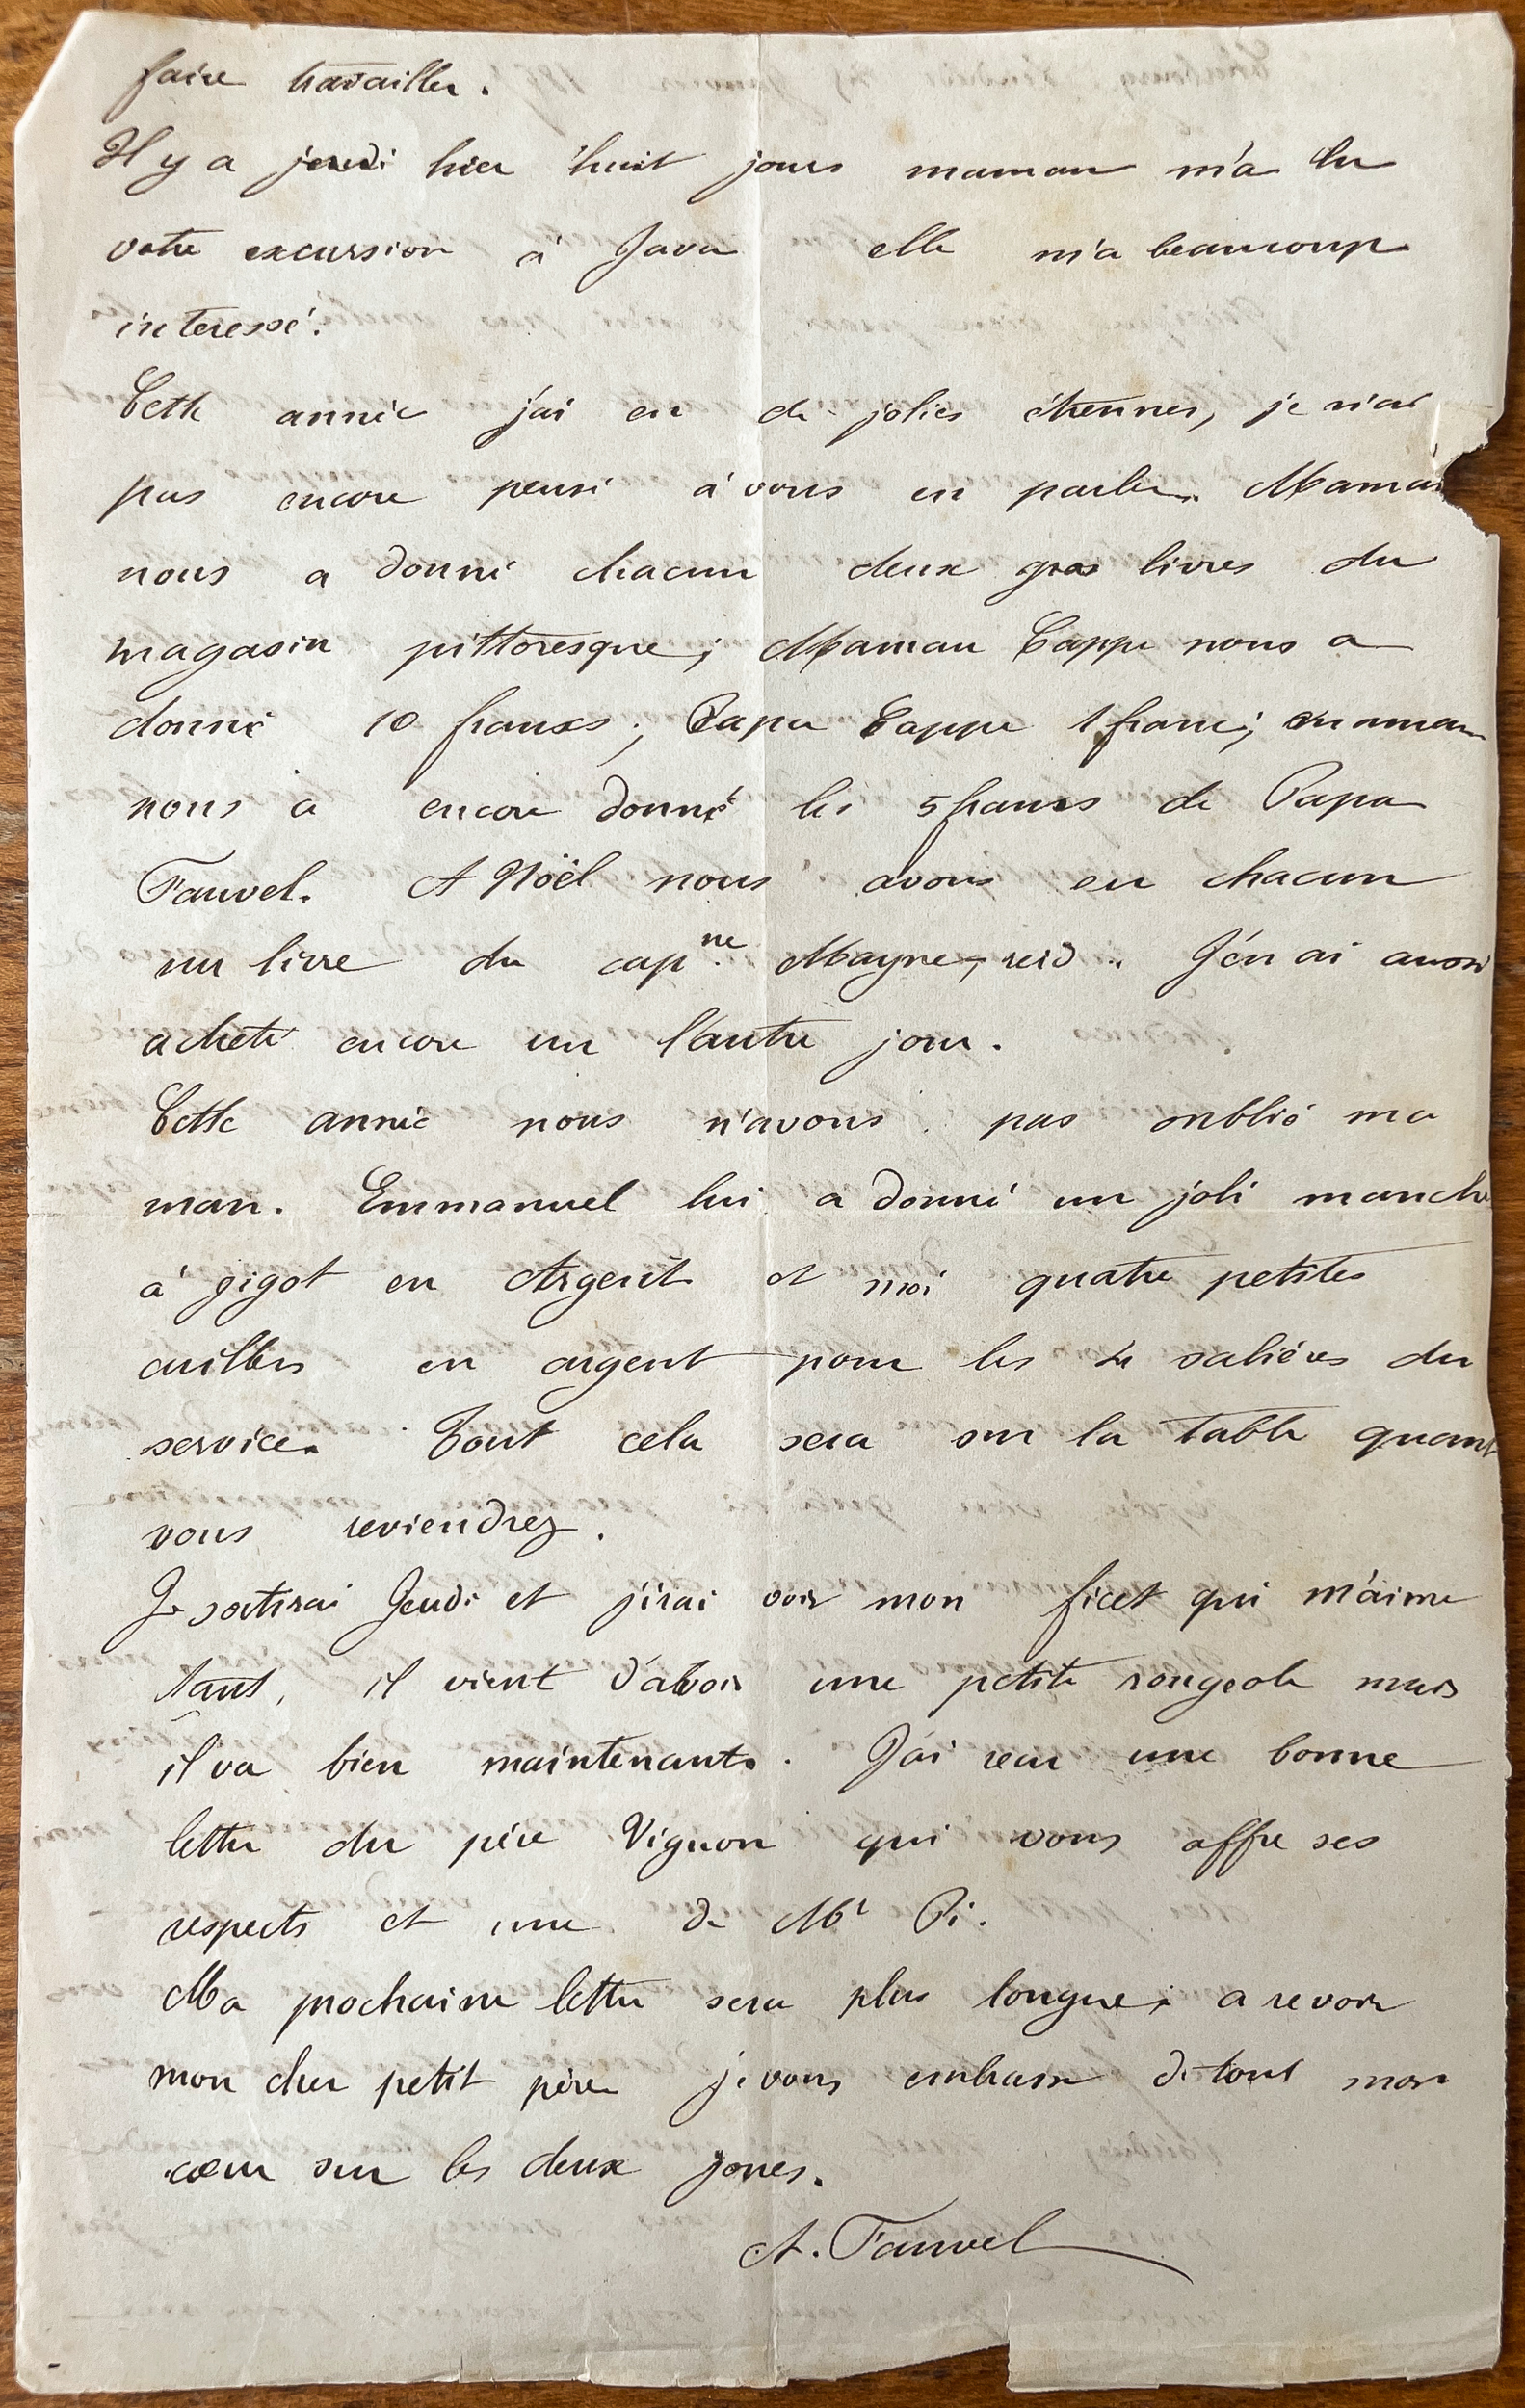 faire travailler.
Il y a jeudi hier huit jours maman m'a lu
votre excursion à Java elle m'a beaucoup
interessé.
Cette année j'ai eu de jolies étrennes, je n'ai
pas encore pensé à vous en parler. Maman
nous a donné chacun deux gros livres du
magasin pittoresque; Maman Cappe nous a
donné 10 francs; Papa Cappe 1 franc; maman
nous a encore donné les 5 francs de Papa
Fauvel. A Nöël nous avons eu chacun
un livre du cap.ne Mayne-reid. J'en ai aussi
acheté encore un l'autre jour.
Cette année nous n'avons pas oublié ma
man. Emmanuel lui a donné un joli manche
à gigot en Argent et moi quatre petites
cuillers en argent pour les 4 salières du
service. Tout cela sera sur la table quant
vous reviendrez.
Je sortirai Jeudi et j'irai voir mon ficet qui m'aime
tant, il vient d'avoir une petite rougeole mais
il va bien maintenant. J'ai reçu une bonne
lettre du père Vignon qui vous offre ses
respects et une de Mr Pi.
Ma prochaine lettre sera plus longue; a revoir
mon cher petit père je vous embrasse de tout mon
cœur sur les deux joues.
A. Fauvel